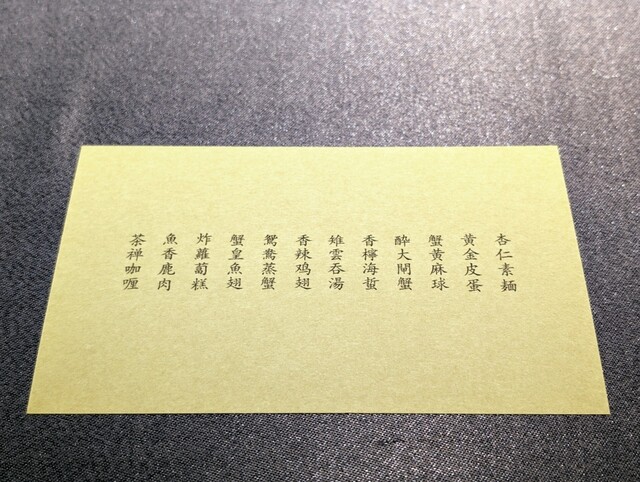 杏仁素麺
黃金皮蛋
蟹黃麻球
醉大閘蟹
香檸海蜇
雉雲吞湯
香辣鸡翅
鴛鴦蒸蟹
蟹皇魚翅
炸蘿蔔糕
魚香鹿肉
茶禅咖喱